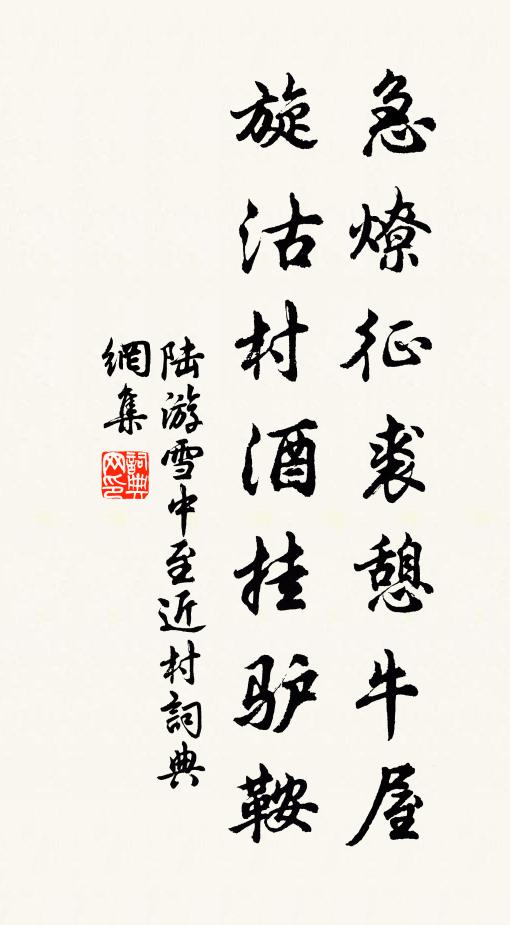 急燎征裘憩牛屋
旋沽村酒挂驴鞍
陆游雪中至近村詞典
網集
詞典网印